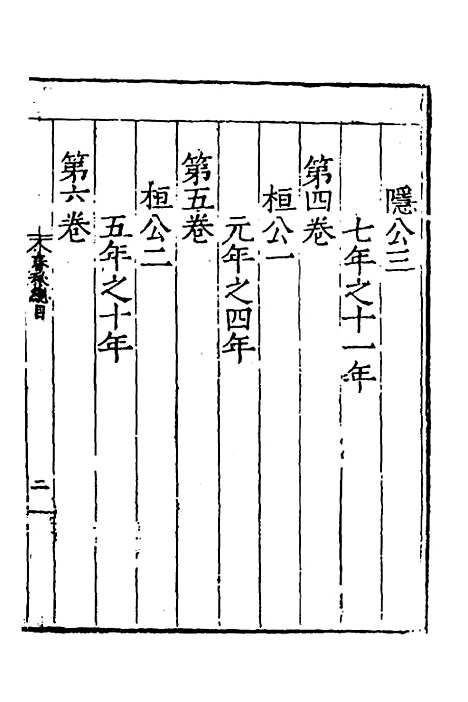 隱公三
七年之十一年
第四卷
桓公一
元年之四年
第五卷
桓公二
五年之十年
第六卷
春秋總目
二